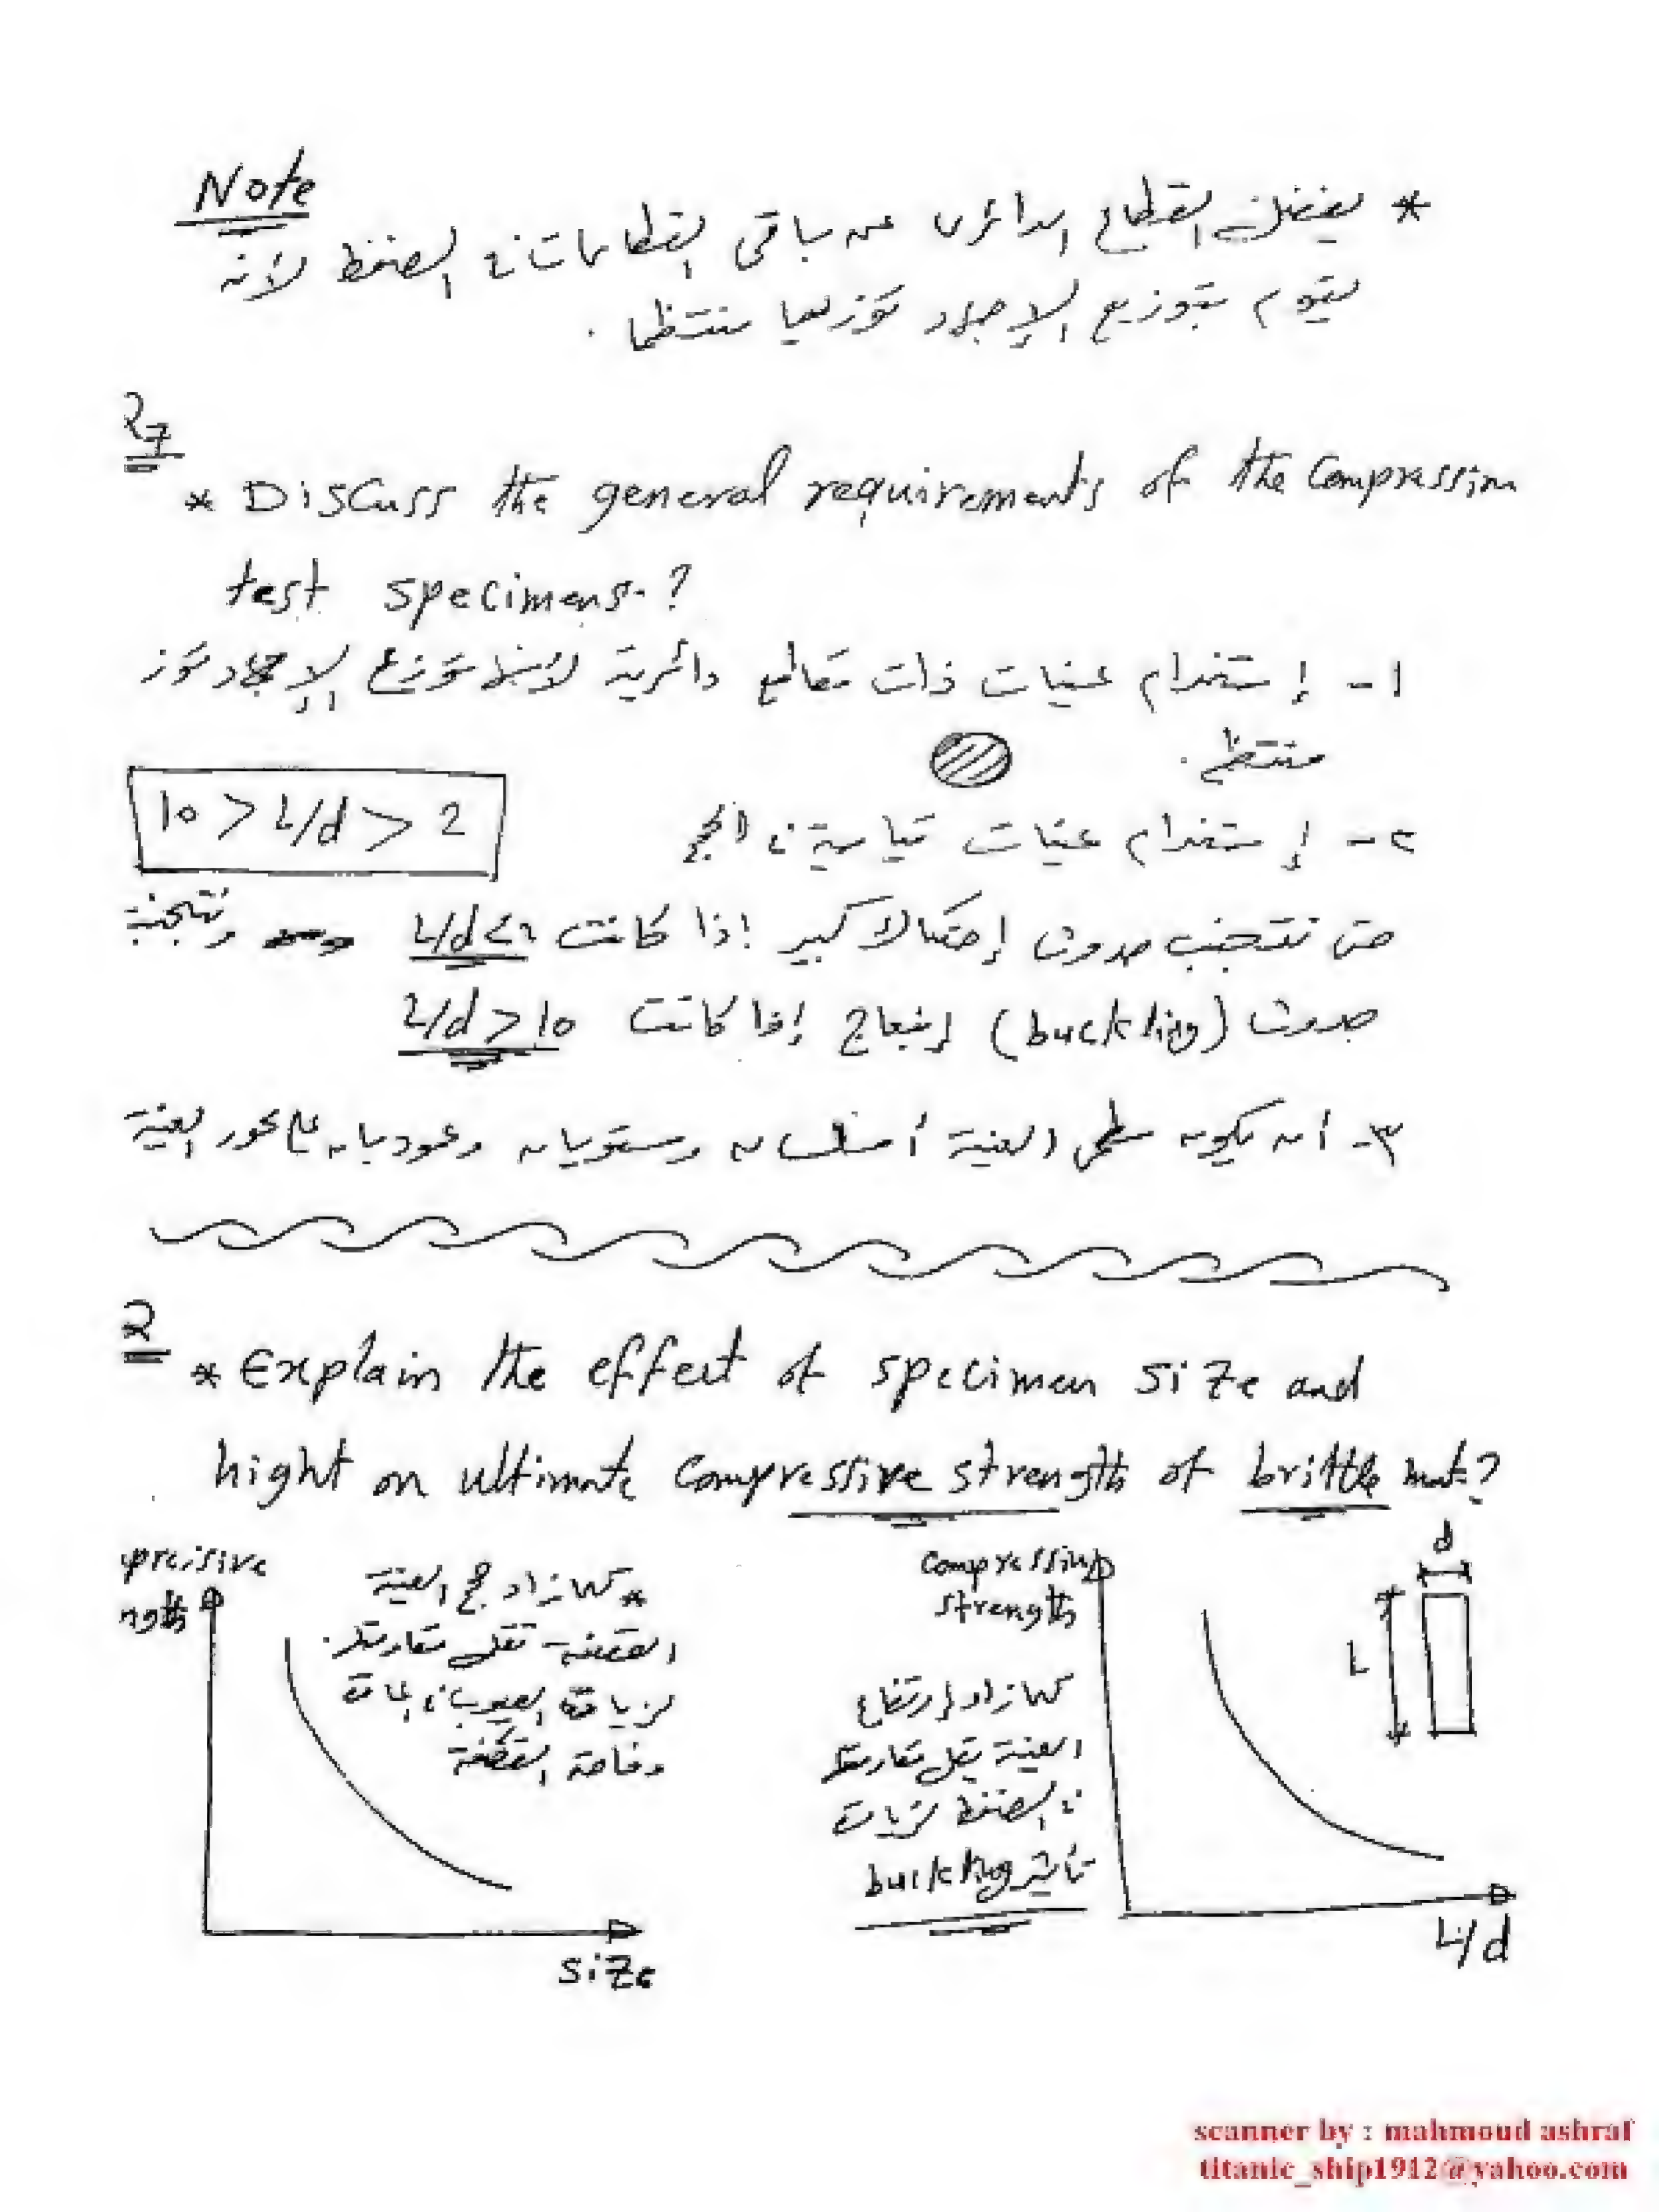 Note
* يفضل القطاع الدائرى عن باقى القطاعات فى الضغط لأنه
يقوم بتوزيع الإجهاد توزيعا منتظما .
* Discuss the general requirements of the compression
test specimens?
١- إستخدام عينات ذات مقاطع دائرية لأنها توزع الإجهاد
منتظم .
٢- إستخدام عينات قياسية فى الحجم
10 > L/d > 2
حتى نتجنب حدوث إحتكاك كبير إذا كانت L/d < 2 ونتجنب
حدوث (buckling) إنبعاج إذا كانت L/d > 10
٣- أن يكون سطحى العينة أملسان ومستويان وعموديان على محور العينة
* Explain the effect of specimen size and
hight on ultimate compressive strength of brittle mat.?
pressive
ngth
* كلما زاد حجم العينة
تقل مقاومتها .
لزيادة العيوب فى المادة
وخاصة
size
compression
strength
كلما زاد إرتفاع
العينة يقل مقاومتها
فى الضغط لزيادة
تأثير buckling
d
L
L/d
scanner by : mahmoud ashraf
titanic_ship1912@yahoo.com